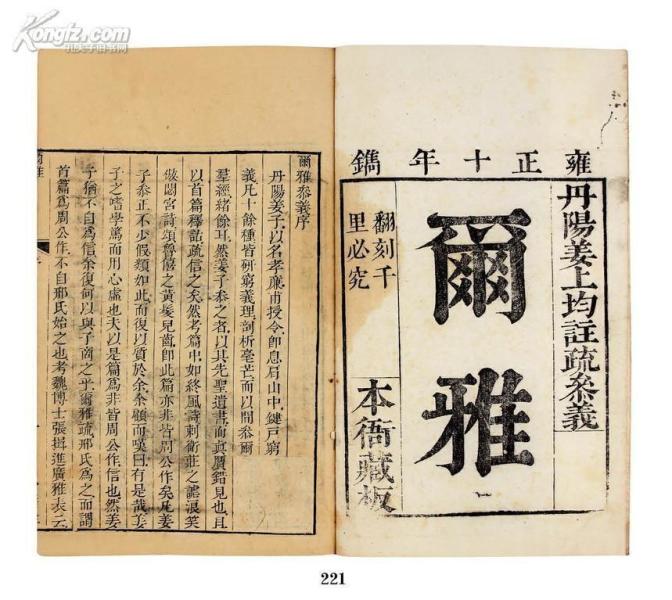 Kongfz.com
孔夫子旧书网
雍正十年鐫
丹陽姜上均註疏叅義
爾雅
翻刻千
里必究
本衙藏板
爾雅叅義序
丹陽姜子以名孝廉甫授令卽息肩山中鍵戸窮
義凡十餘種皆研窮義理剖析毫芒而以間叅爾
羣經緒餘耳然姜子叅之者以其先聖遺書而眞贋錯見也且
以首篇釋詁疏信之矣然考篇中如終風詩刺衛莊之謔浪笑
敖閟宮詩頌魯僖之黃髮兒齒卽此篇亦非皆周公作矣凡姜
子叅正不少假類如此而復以質於余余顧而嘆曰有是哉姜
子之嗜學篤而用心虛也夫以是篇爲非皆周公作信也然姜
子猶不自爲信余復何以與子商之乎爾雅疏邢氏爲之而謂
首篇爲周公作不自邢氏始之也考魏博士張揖進廣雅表云
爾雅
221